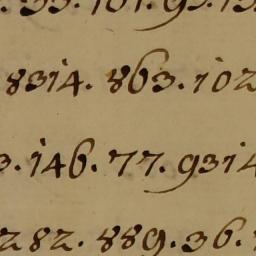 8314. 863. 102
3. 146. 77. 9314
282. 889. 36.